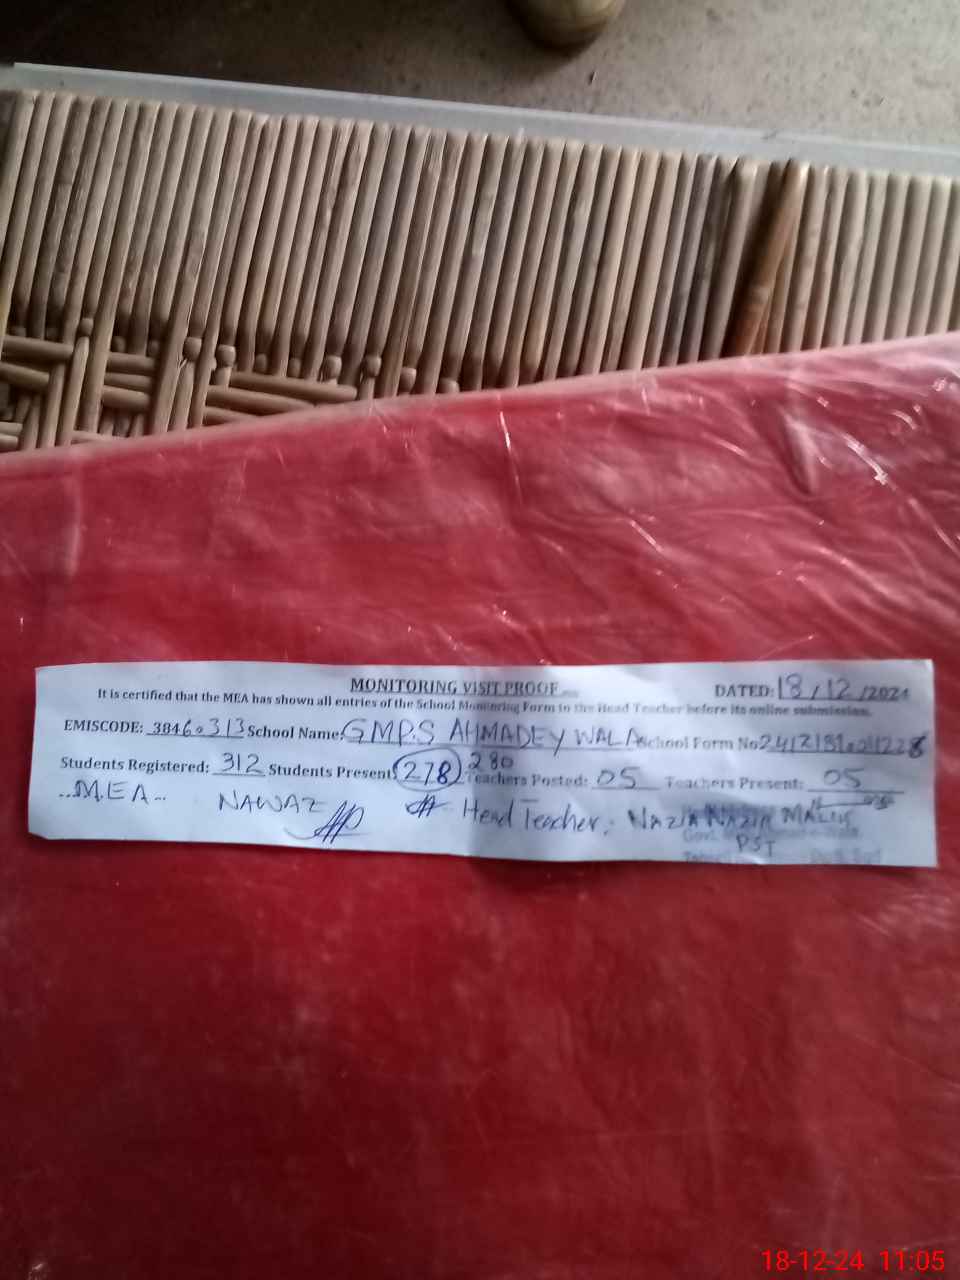 MONITORING VISIT PROOF
DATED: 18/12/2024
It is certified that the MEA has shown all entries of the School Monitoring Form to the Head Teacher before its online submission.
EMISCODE: 38460313 School Name: GMPS AHMADEY WALA School Form No
280
Students Registered: 312 Students Present: 278 Teachers Posted: 05 Teachers Present: 05
M.E.A NAWAZ Head Teacher: NAZIA NAZIR MALIK
Govt.
PST
18-12-24 11:05